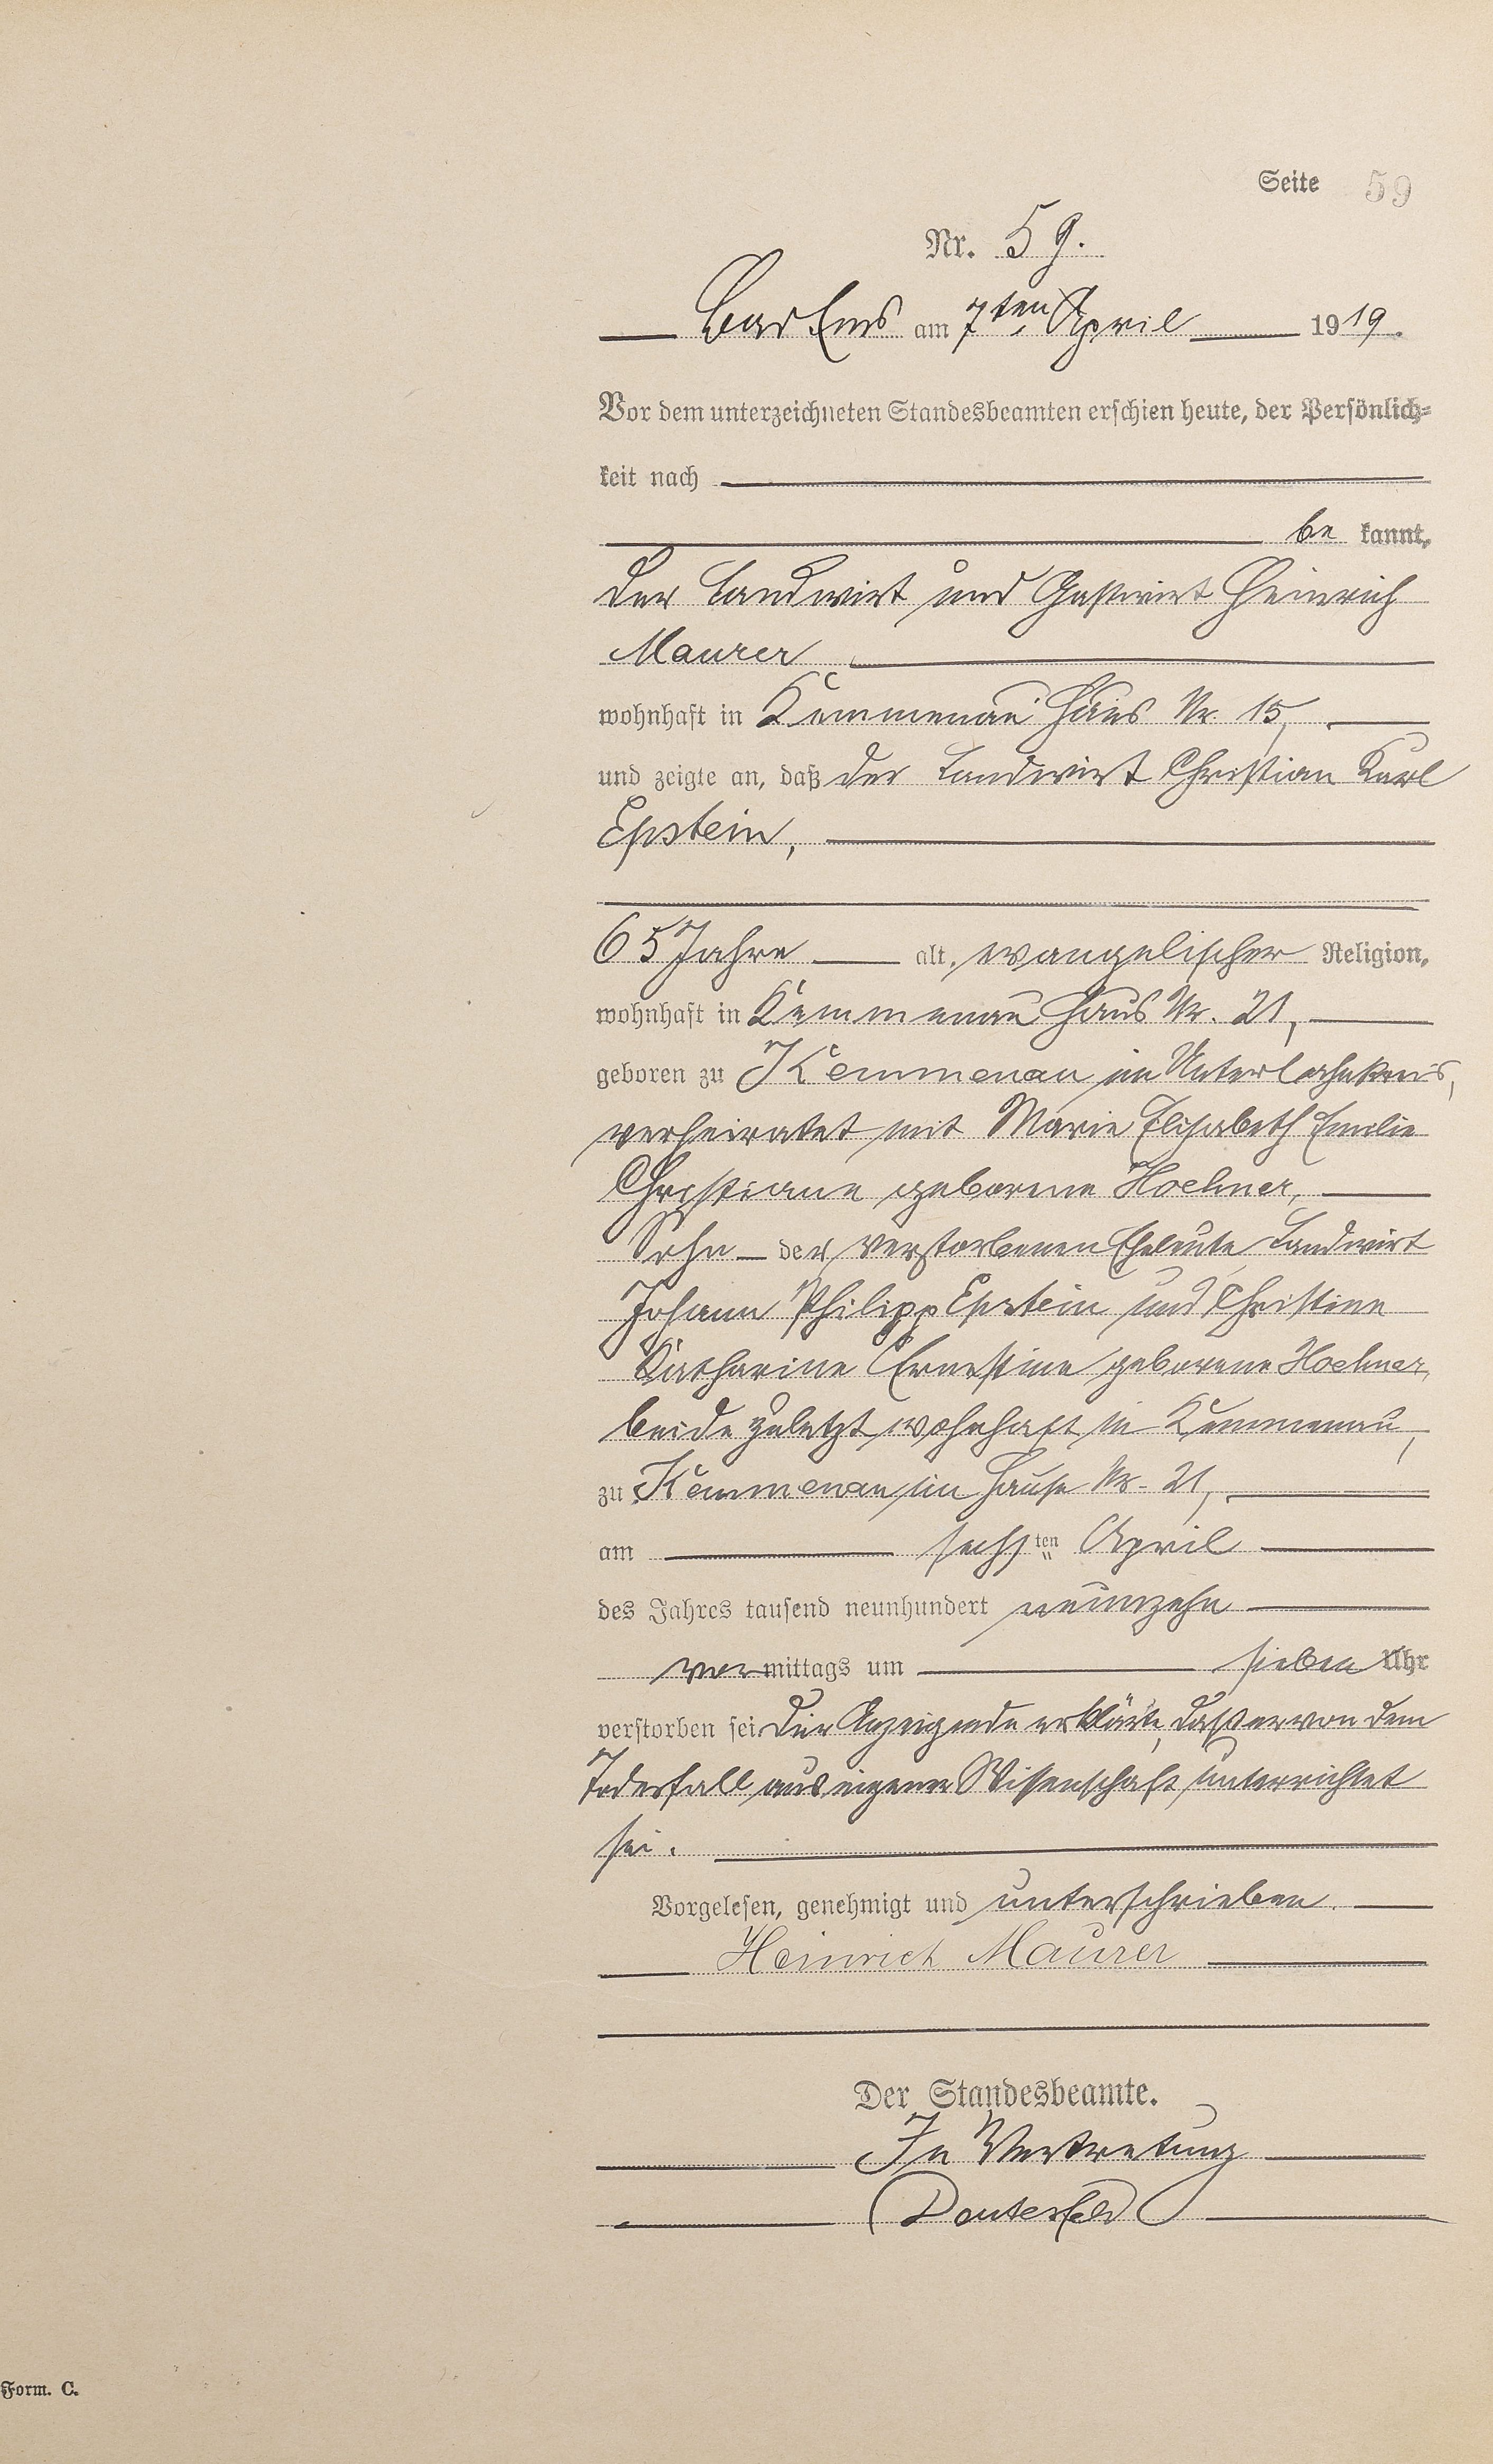 Seite 59
Nr. 59.
Bad Ems am 7ten April 1919.
Vor dem unterzeichneten Standesbeamten erschien heute, der Persönlich=
keit nach
be kannt,
der Landwirt und Gastwirt Heinrich
Maurer
wohnhaft in Kemmenau Haus Nr. 15,
und zeigte an, daß der Landwirt Christian Karl
Epstein,
65 Jahre alt, evangelischer Religion,
wohnhaft in Kemmenau Haus Nr. 21,
geboren zu Kemmenau im Unterlahnkreis,
verheiratet mit Marie Elisabeth Emilie
Christiane geborene Hoehner,
Sohn der verstorbenen Eheleute Landwirt
Johann Philipp Epstein und Christine
Katharine Ernestine geborene Hoehner,
beide zuletzt wohnhaft in Kemmenau,
zu Kemmenau im Hause Nr. 21,
am sechsten April
des Jahres tausend neunhundert neunzehn
vormittags um sieben Uhr
verstorben sei. Der Anzeigende erklärte, daß er von dem
Todesfall aus eigener Wissenschaft unterrichtet
sei.
Vorgelesen, genehmigt und unterschrieben.
Heinrich Maurer
Der Standesbeamte.
In Vertretung
Form. C.